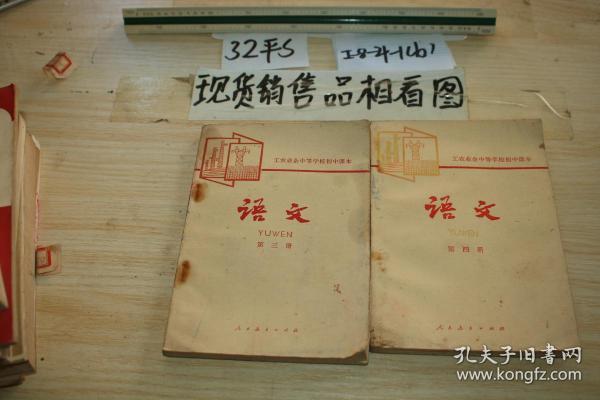 32平S
I-8-21-1(b)
现货销售品相看图
工农业余中等学校初中课本
语文
YUWEN
第三册
人民教育出版社
工农业余中等学校初中课本
语文
YUWEN
第四册
人民教育出版社
孔夫子旧书网
www.kongfz.com